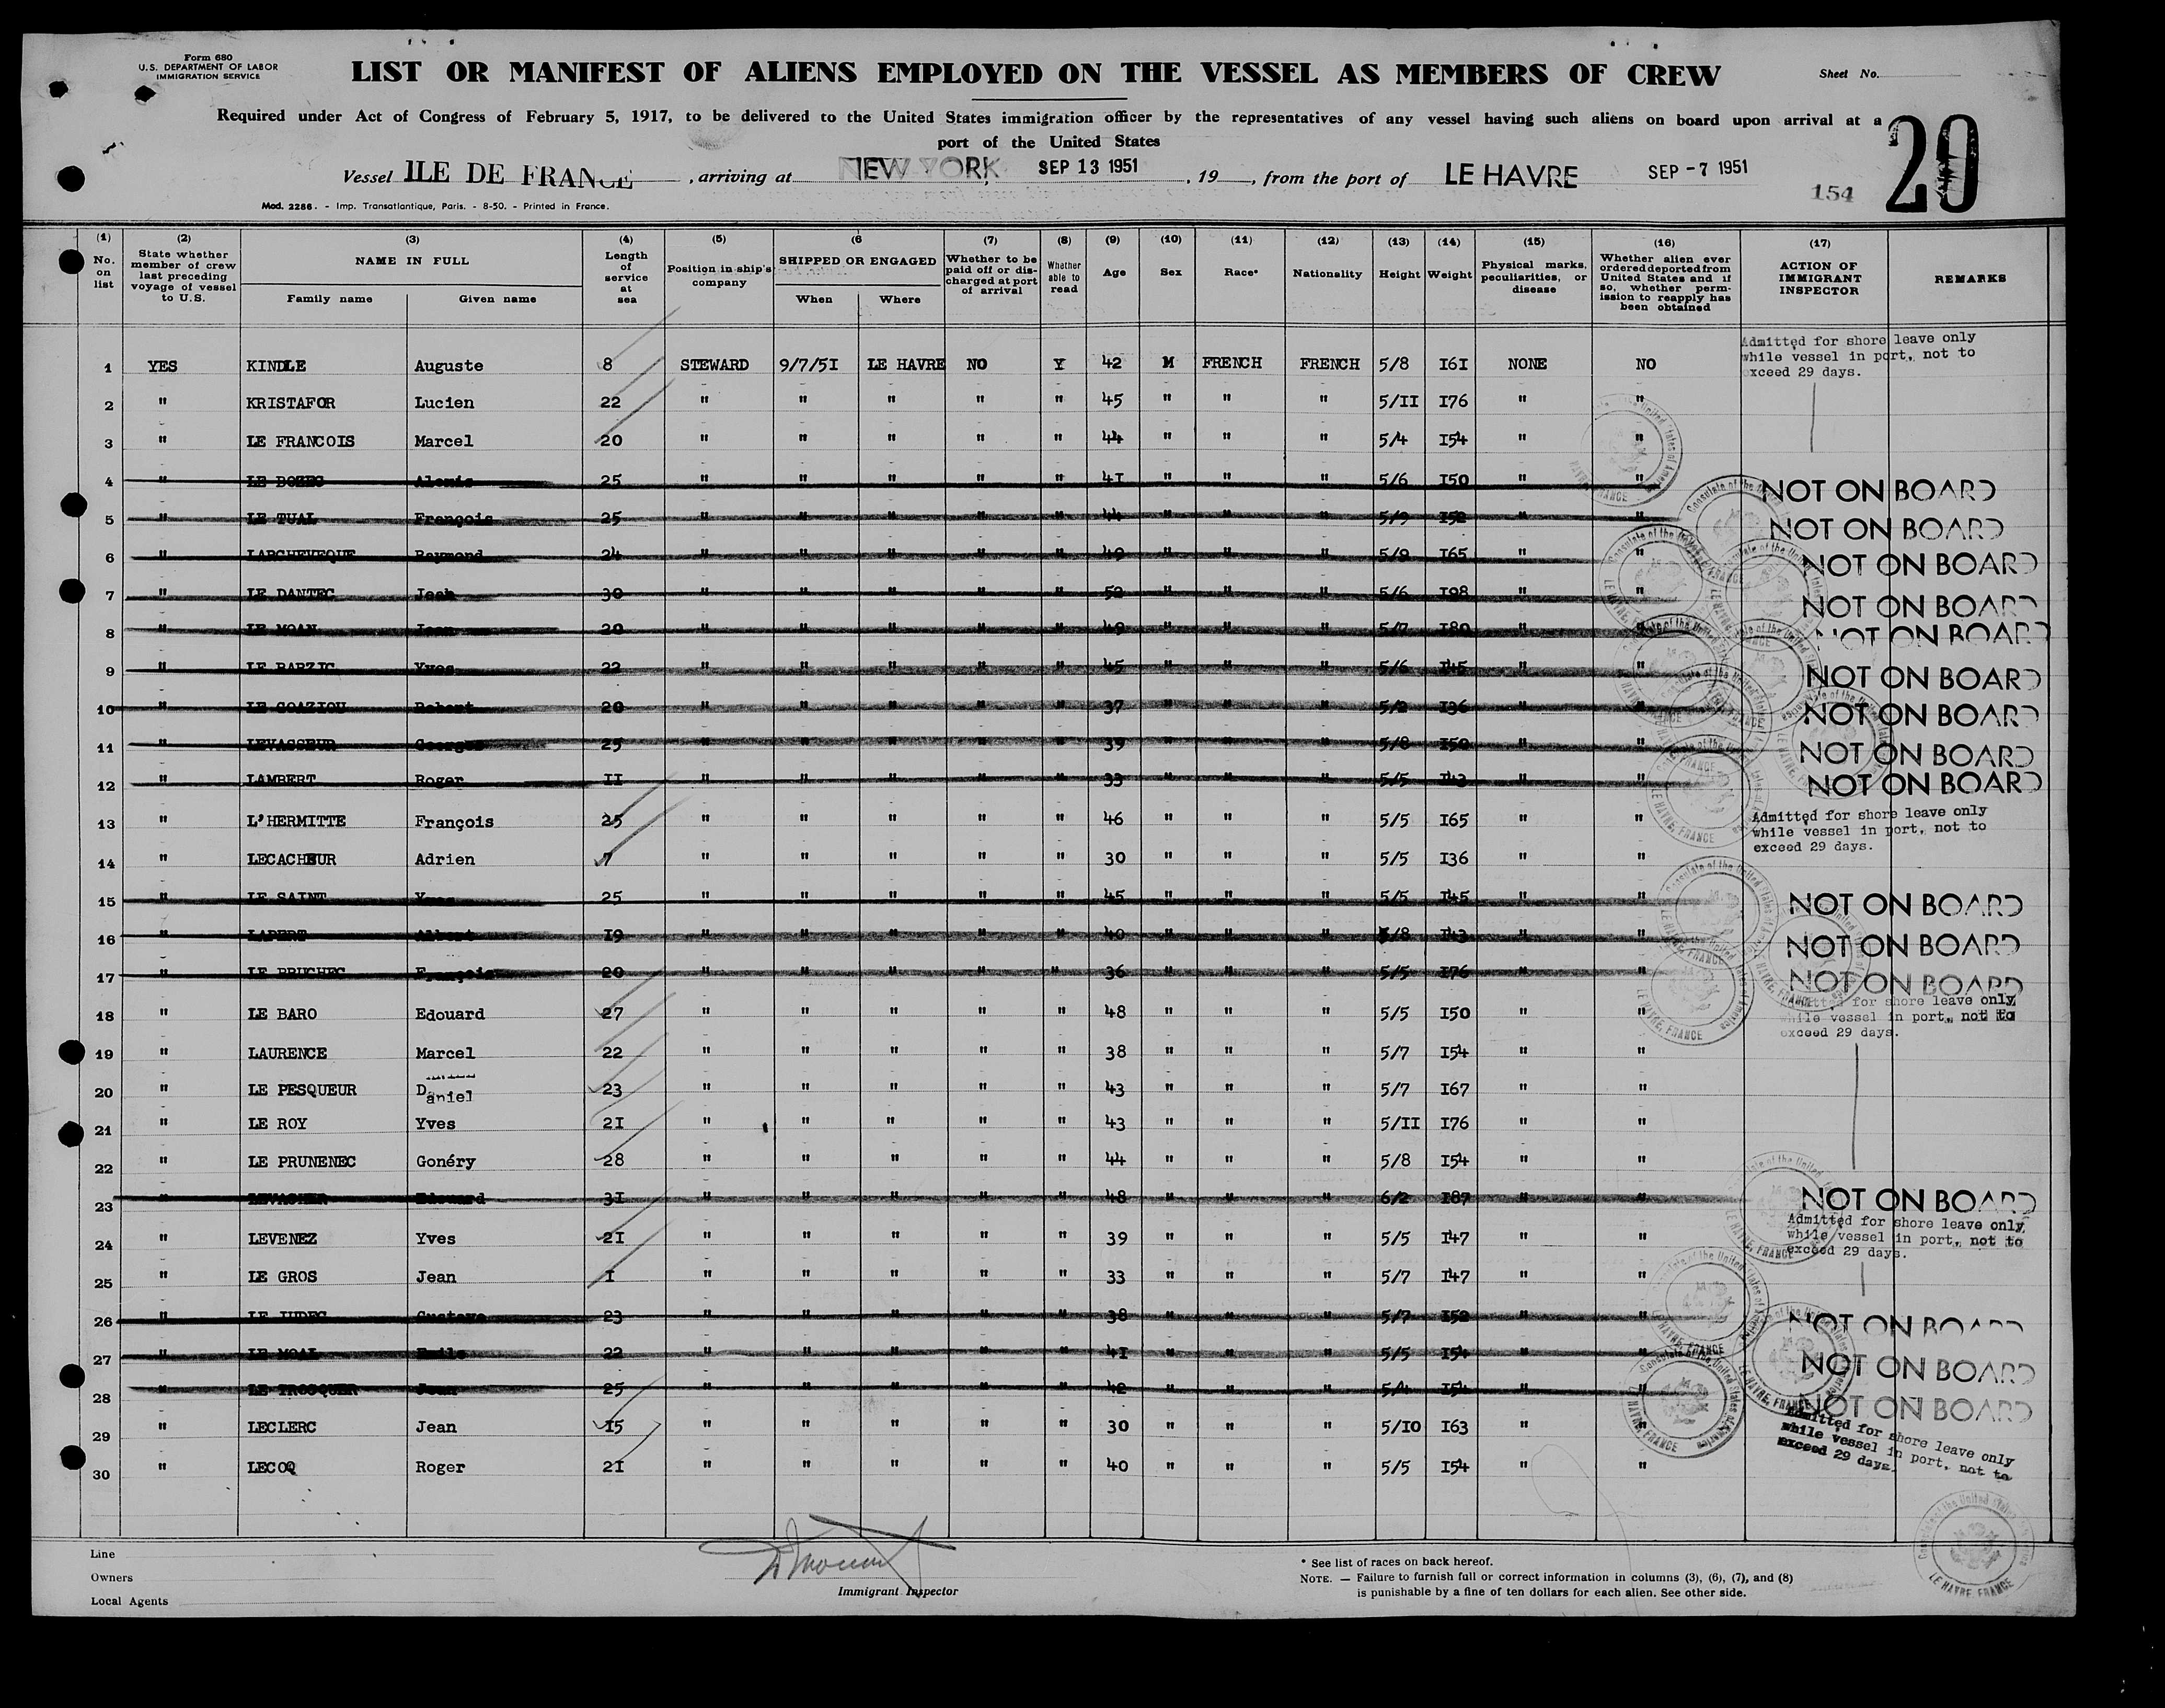 Form 680
U.S. DEPARTMENT OF LABOR
IMMIGRATION SERVICE
LIST OR MANIFEST OF ALIENS EMPLOYED ON THE VESSEL AS MEMBERS OF CREW
Sheet No.
Required under Act of Congress of February 5, 1917, to be delivered to the United States immigration officer by the representatives of any vessel having such aliens on board upon arrival at a
port of the United States
20
Vessel ILE DE FRANCE, arriving at NEW YORK, SEP 13 1951, 19, from the port of LE HAVRE SEP -7 1951
154
Mod. 2286. - Imp. Transatlantique, Paris. - 8-50. - Printed in France.
(1) (2) (3) (4) (5) (6 (7) (8) (9) (10) (11) (12) (13) (14) (15) (16) (17)
No. on list
State whether member of crew last preceding voyage of vessel to U.S.
NAME IN FULL
Family name Given name
Length of service at sea
Position in ship's company
SHIPPED OR ENGAGED
When Where
Whether to be paid off or discharged at port of arrival
Whether able to read
Age
Sex
Race*
Nationality
Height
Weight
Physical marks, peculiarities, or disease
Whether alien ever ordered deported from United States and if so, whether permission to reapply has been obtained
ACTION OF IMMIGRANT INSPECTOR
REMARKS
1 YES KINDLE Auguste 8 STEWARD 9/7/5I LE HAVRE NO Y 42 M FRENCH FRENCH 5/8 I6I NONE NO Admitted for shore leave only while vessel in port, not to exceed 29 days.
2 " KRISTAFOR Lucien 22 " " " " " 45 " " " 5/II I76 " "
3 " LE FRANCOIS Marcel 20 " " " " " 44 " " " 5/4 I54 " "
4 " LE BOZEC Alexis 25 " " " " " 4I " " " 5/6 I50 " " NOT ON BOARD
5 " LE TUAL François 25 " " " " " 44 " " " 5/9 I52 " " NOT ON BOARD
6 " LARCHEVEQUE Raymond 24 " " " " " 49 " " " 5/9 I65 " " NOT ON BOARD
7 " LE DANTEC Jean 30 " " " " " 52 " " " 5/6 I98 " " NOT ON BOARD
8 " LE MOAN Jean 20 " " " " " 49 " " " 5/7 I80 " " NOT ON BOARD
9 " LE BARZIC Yves 22 " " " " " 45 " " " 5/6 I45 " " NOT ON BOARD
10 " LE GOAZIOU Robert 20 " " " " " 37 " " " 5/2 I36 " " NOT ON BOARD
11 " LEVASSEUR Georges 25 " " " " " 39 " " " 5/8 I50 " " NOT ON BOARD
12 " LAMBERT Roger II " " " " " 33 " " " 5/5 I43 " " NOT ON BOARD
13 " L'HERMITTE François 25 " " " " " 46 " " " 5/5 I65 " " Admitted for shore leave only while vessel in port, not to exceed 29 days.
14 " LECACHEUR Adrien 7 " " " " " 30 " " " 5/5 I36 " "
15 " LE SAINT Yves 25 " " " " " 45 " " " 5/5 I45 " " NOT ON BOARD
16 " LAPERT Albert I9 " " " " " 40 " " " 5/8 I43 " " NOT ON BOARD
17 " LE BRUCHEC François 20 " " " " " 36 " " " 5/5 I76 " " NOT ON BOARD
18 " LE BARO Edouard 27 " " " " " 48 " " " 5/5 I50 " " Admitted for shore leave only while vessel in port, not to exceed 29 days.
19 " LAURENCE Marcel 22 " " " " " 38 " " " 5/7 I54 " "
20 " LE PESQUEUR Daniel 23 " " " " " 43 " " " 5/7 I67 " "
21 " LE ROY Yves 2I " " " " " 43 " " " 5/II I76 " "
22 " LE PRUNENEC Gonéry 28 " " " " " 44 " " " 5/8 I54 " "
23 " LEVACHER Edouard 3I " " " " " 48 " " " 6/2 I87 " " NOT ON BOARD
24 " LEVENEZ Yves 2I " " " " " 39 " " " 5/5 I47 " " Admitted for shore leave only while vessel in port, not to exceed 29 days.
25 " LE GROS Jean I " " " " " 33 " " " 5/7 I47 " "
26 " LE JUDEC Gustave 23 " " " " " 38 " " " 5/7 I52 " " NOT ON BOARD
27 " LE MOAL Emile 22 " " " " " 4I " " " 5/5 I54 " " NOT ON BOARD
28 " LE TROCQUER Jean 25 " " " " " 42 " " " 5/4 I54 " " NOT ON BOARD
29 " LECLERC Jean I5 " " " " " 30 " " " 5/I0 I63 " " Admitted for shore leave only while vessel in port, not to exceed 29 days.
30 " LECOQ Roger 2I " " " " " 40 " " " 5/5 I54 " "
Consulate of the United States of America
LE HAVRE, FRANCE
Line
Owners
Local Agents
Immigrant Inspector
* See list of races on back hereof.
NOTE. — Failure to furnish full or correct information in columns (3), (6), (7), and (8)
is punishable by a fine of ten dollars for each alien. See other side.